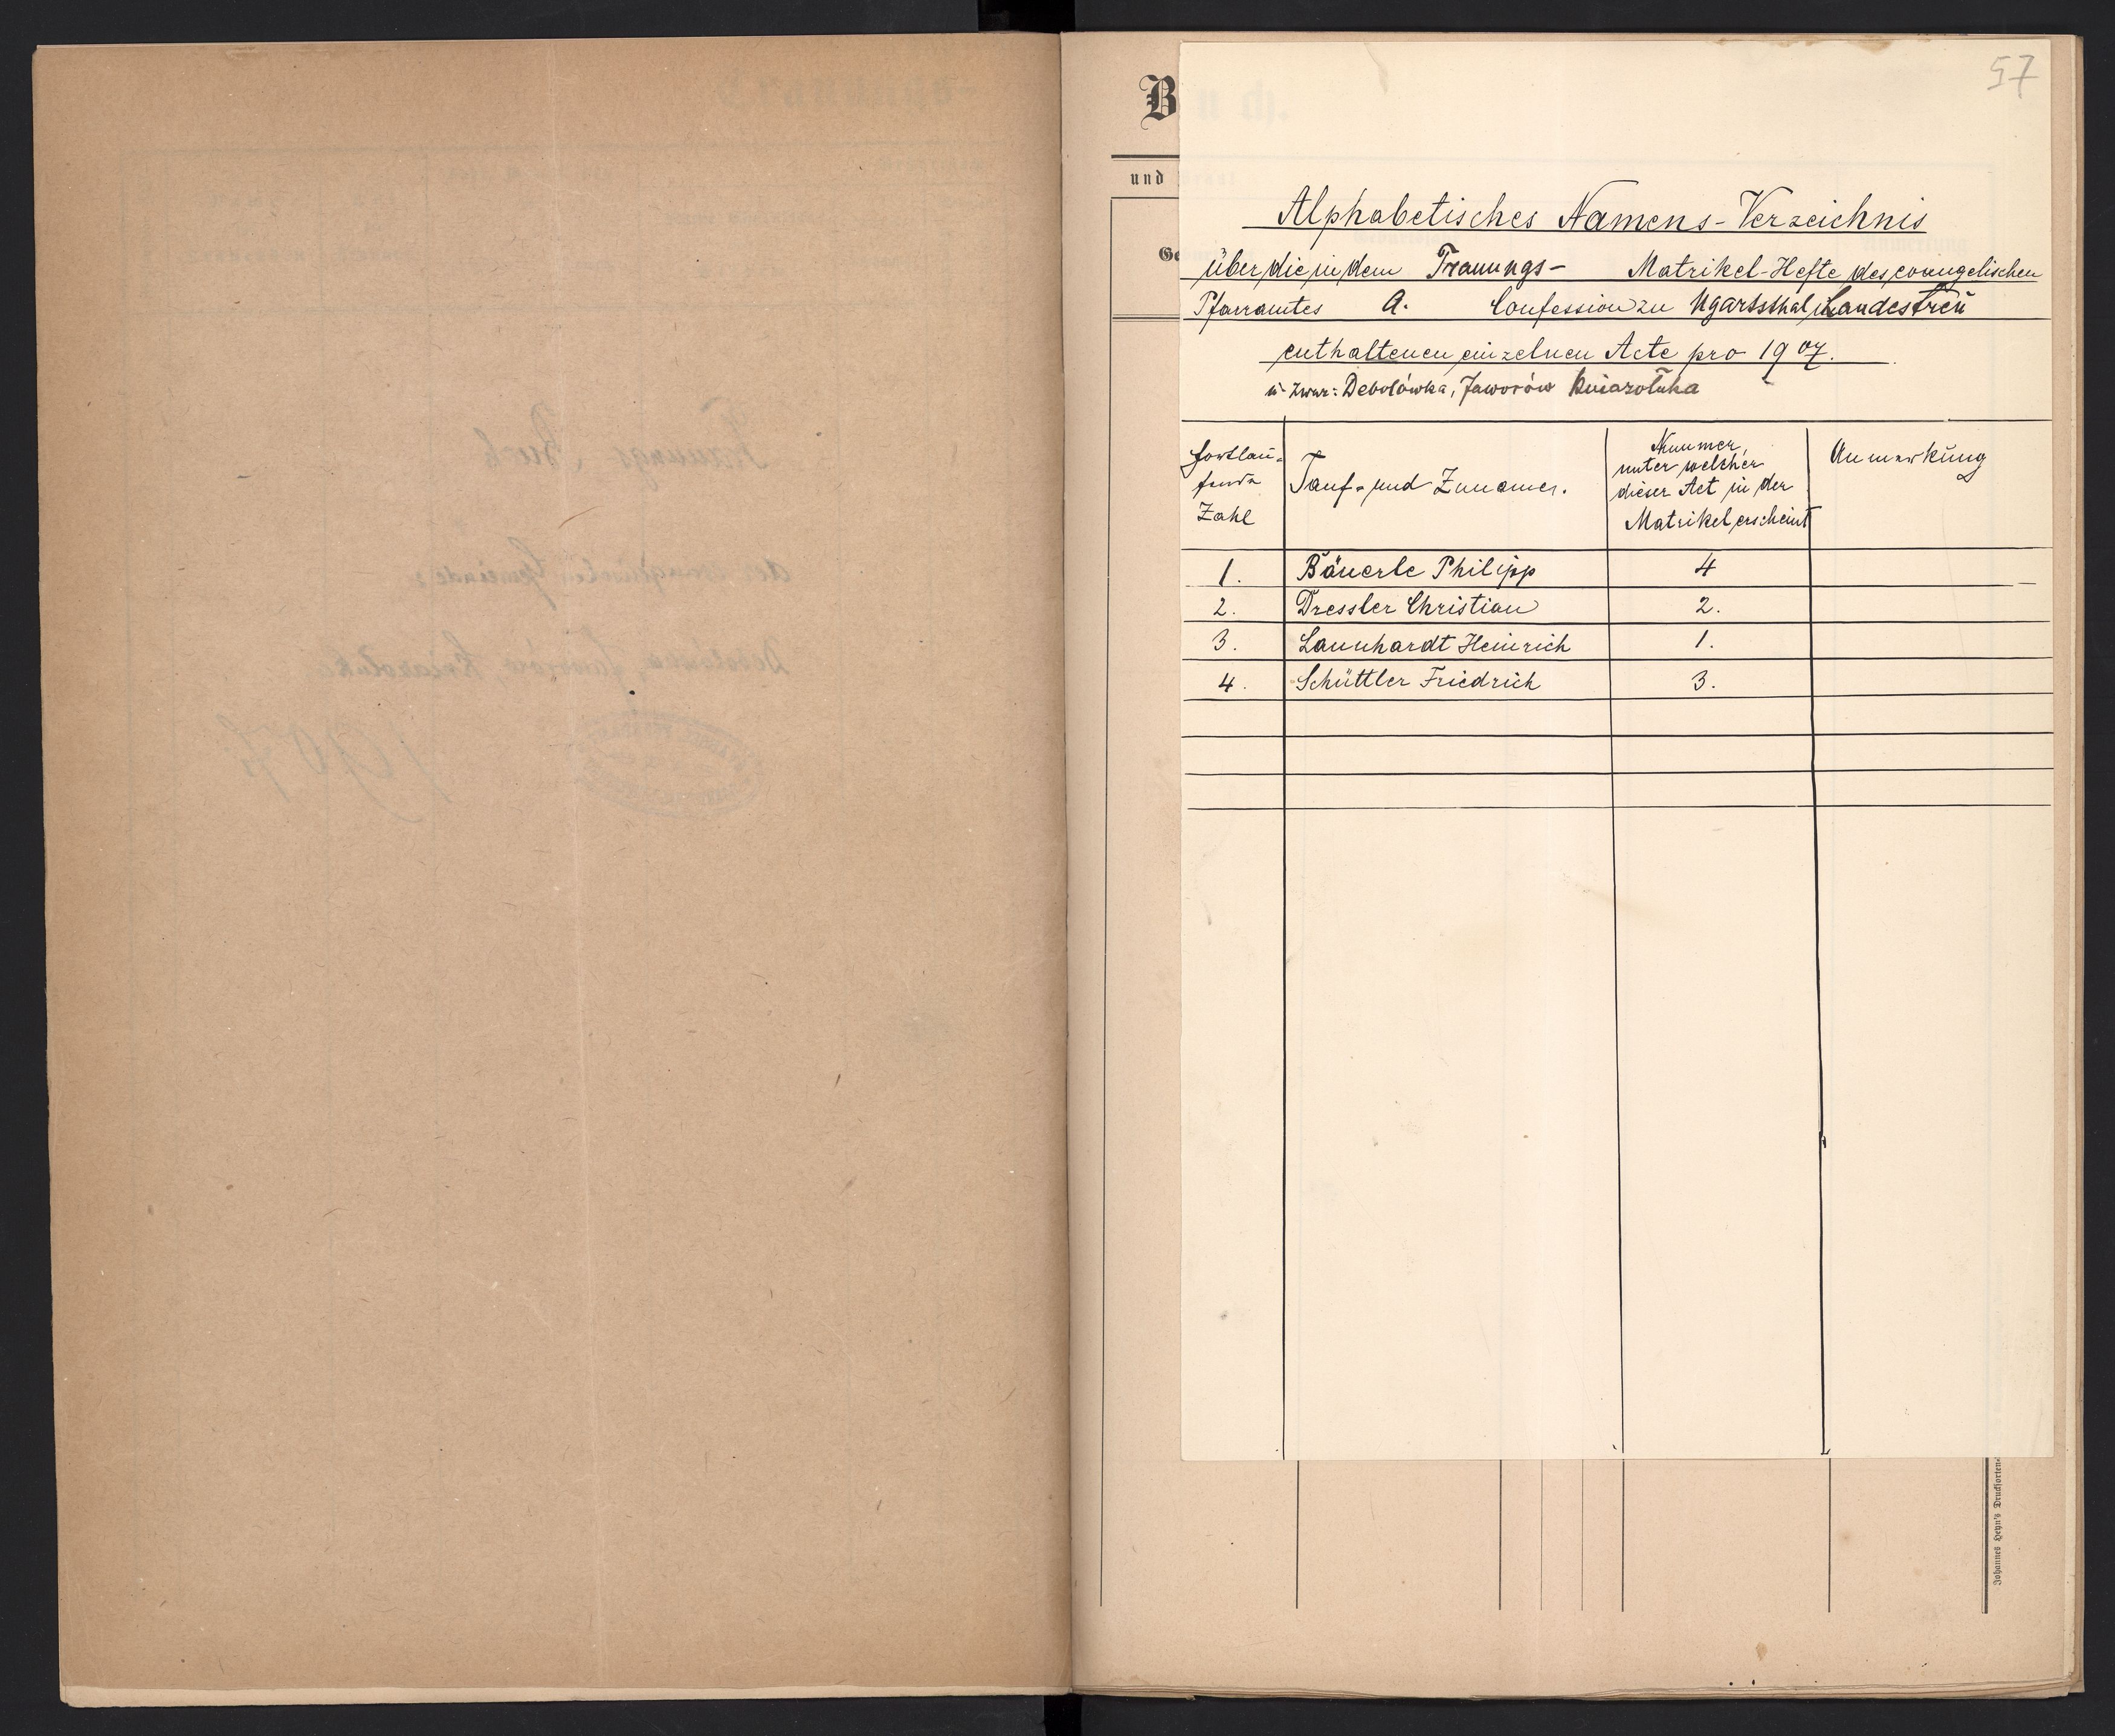 57
B
und
Ge
Alphabetisches Namens-Verzeichnis
über die in dem Trauungs- Matrikel-Hefte des evangelischen
Pfarramtes A. Confession zu Ugartsthal Landestreu
enthaltenen einzelnen Acte pro 1907.
u. zwar: Debolówka, Jaworów Kniazoluka
fortlau-
fende
Zahl
Tauf- und Zuname.
Nummer,
unter welcher
dieser Act in der
Matrikel erscheint
Anmerkung
1. Bäuerle Philipp 4
2. Dressler Christian 2.
3. Launhardt Heinrich 1.
4. Schüttler Friedrich 3.
Johannes Heyn's Druckforten-